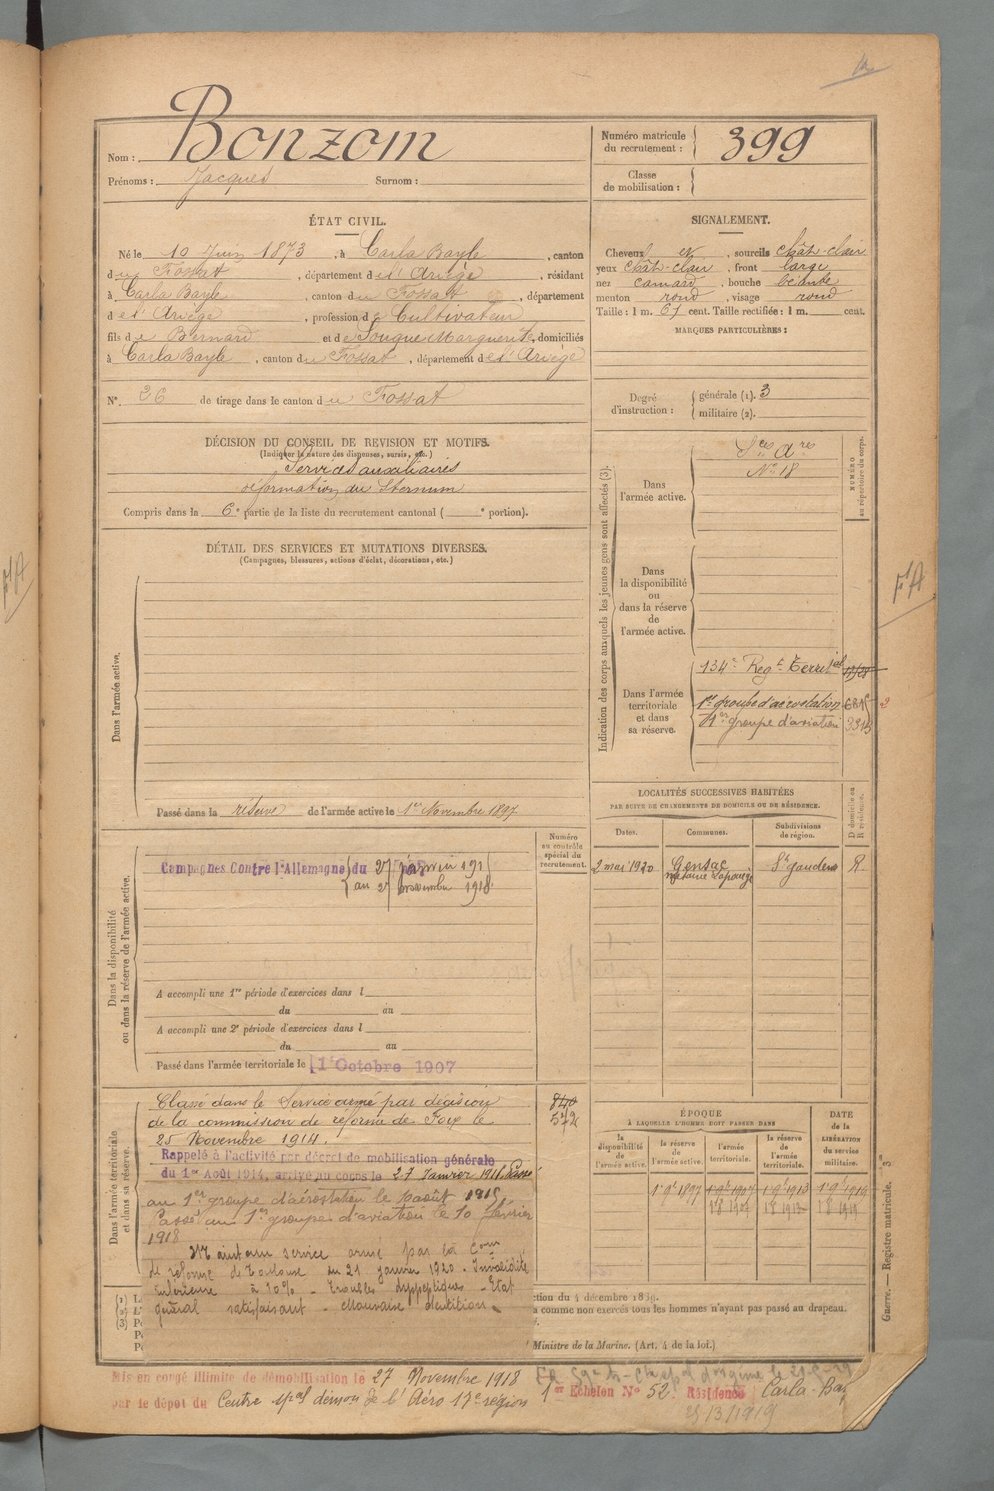 Bonzom
Nom :
Prénoms : Jacques Surnom :
Numéro matricule
du recrutement : 399
Classe
de mobilisation :
ÉTAT CIVIL.
Né le 10 Juin 1873, à Carla Bayle, canton
du Fossat, département de l'Ariège, résidant
à Carla Bayle, canton du Fossat, département
de l'Ariège, profession de Cultivateur
fils de Bernard et de Souque Marguerite, domiciliés
à Carla Bayle, canton du Fossat, département de l'Ariège
N°. 26 de tirage dans le canton du Fossat
SIGNALEMENT.
Cheveux et, sourcils chât-clair
yeux chât-clair, front large
nez camard, bouche béante
menton rond, visage rond
Taille : 1 m. 61 cent. Taille rectifiée : 1 m. cent.
MARQUES PARTICULIÈRES :
Degré
d'instruction :
générale (1). 3
militaire (2).
DÉCISION DU CONSEIL DE REVISION ET MOTIFS.
(Indiquer la nature des dispenses, sursis, etc.)
Services auxiliaires
déformation du sternum
Compris dans la 6e partie de la liste du recrutement cantonal ( e portion).
DÉTAIL DES SERVICES ET MUTATIONS DIVERSES.
(Campagnes, blessures, actions d'éclat, décorations, etc.)
Dans l'armée active.
Passé dans la réserve de l'armée active le 1er Novembre 1897
Indication des corps auxquels les jeunes gens sont affectés (3).
NUMÉRO
au répertoire du corps.
Dans
l'armée active.
Sces Ares
N° 18
Dans
la disponibilité
ou
dans la réserve
de
l'armée active.
Dans l'armée
territoriale
et dans
sa réserve.
134e Regt Territial
1er groupe d'aérostation
1er groupe d'aviation
F'A
F'A
LOCALITÉS SUCCESSIVES HABITÉES
PAR SUITE DE CHANGEMENTS DE DOMICILE OU DE RÉSIDENCE.
Dates. Communes. Subdivisions
de région.
D domicile ou
R résidence.
2 mai 1920 Gensac St gaudens R
Numéro
au contrôle
spécial du
recrutement.
Dans la disponibilité
ou dans la réserve de l'armée active.
Campagnes Contre l'Allemagne du 27 janvier 191
au 27 novembre 1918
A accompli une 1re période d'exercices dans l
du au
A accompli une 2e période d'exercices dans l
du au
Passé dans l'armée territoriale le 1r Octobre 1907
Dans l'armée territoriale
et dans sa réserve.
Classé dans le Service armé par décision
de la commission de réforme de Foix le
25 Novembre 1914.
840
572
Rappelé à l'activité par décret de mobilisation générale
du 1er Août 1914, arrivé au corps le 27 Janvier 1915. Passé
au 1er groupe d'aérostation le août 1915.
Passé au 1er groupe d'aviation le 10 février
1918
Maintenu service armé par la Com
de réforme de Toulouse du 21 janvier 1920. Invalidité
inférieure à 10% - troubles dyspeptiques - Etat
général satisfaisant - Mauvaise dentition.
ÉPOQUE
À LAQUELLE L'HOMME DOIT PASSER DANS
la
disponibilité
de
l'armée active.
la réserve
de
l'armée active.
l'armée
territoriale.
la réserve
de
l'armée
territoriale.
DATE
DE LA
LIBÉRATION
du service
militaire.
1 9bre 1897
Guerre. — Registre matricule. 3e
a comme non exercés tous les hommes n'ayant pas passé au drapeau.
Ministre de la Marine. (Art. 4 de la loi.)
Mis en congé illimité de démobilisation le 27 Novembre 1918
par le dépôt du Centre spal démon de l'Aéro 17e région
1er Echelon N° 52 Résidence Carla-Bay